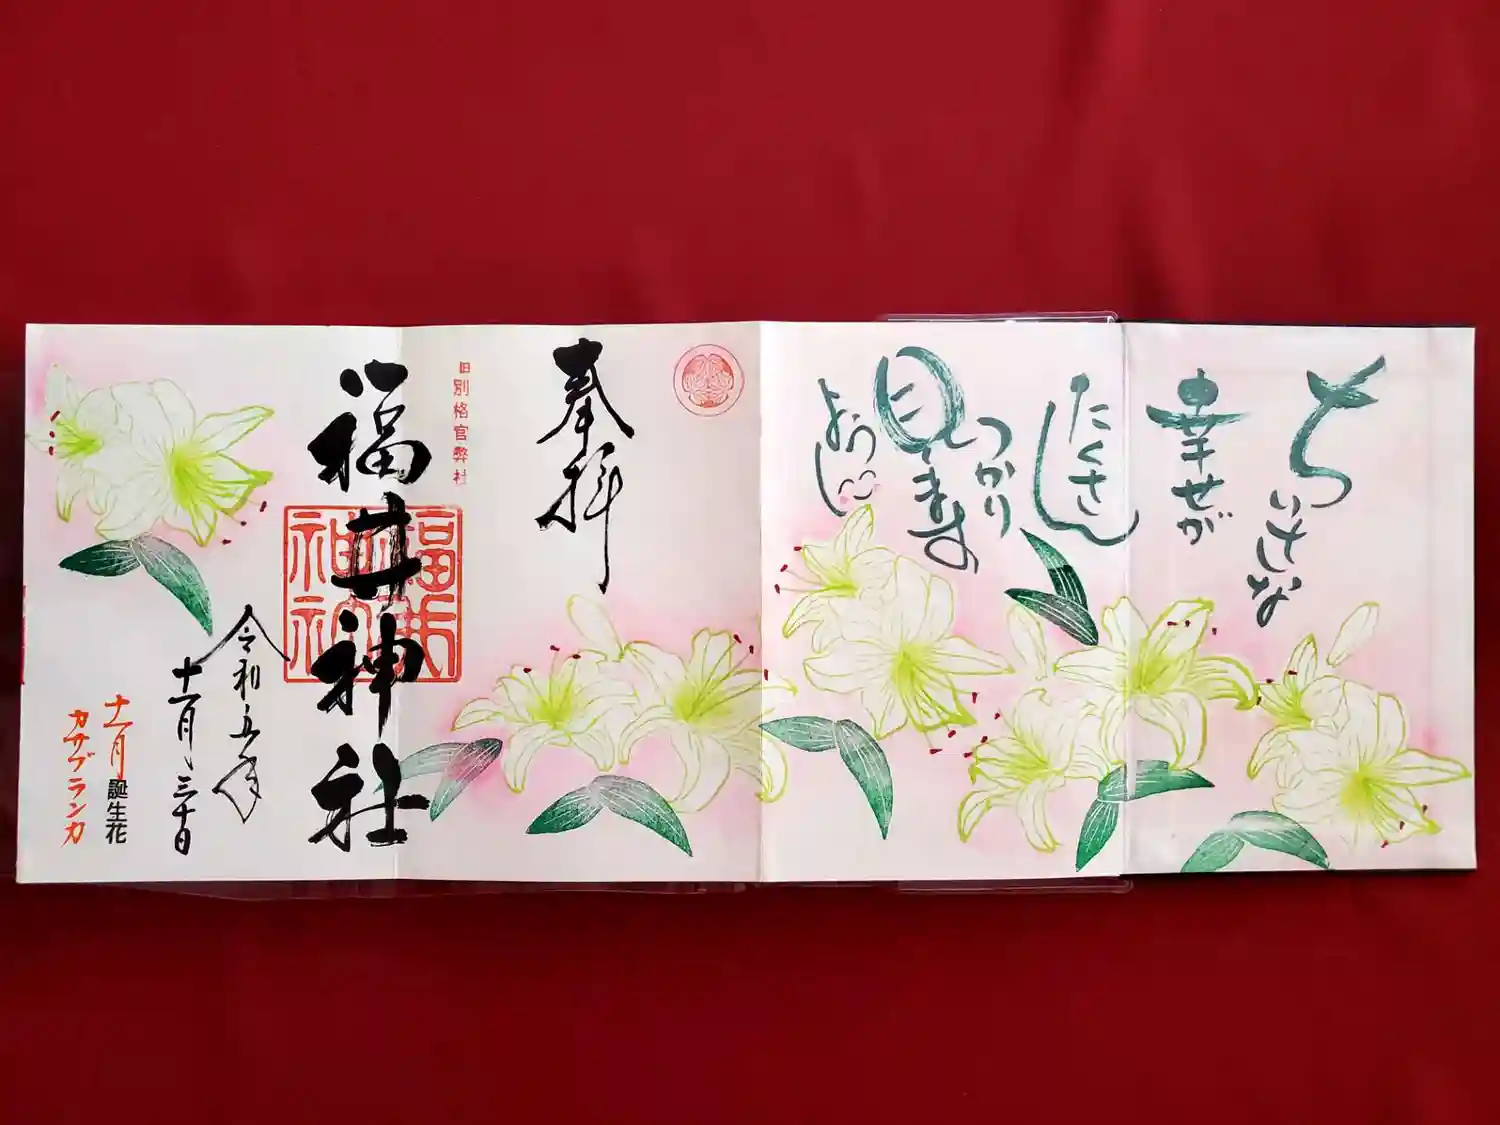 ちいさな
幸せが
たくさん
見つかり
ますように
奉拝
旧別格官幣社
福井神社
福井神社
令和五年
十一月三十日
十一月誕生花
カサブランカ